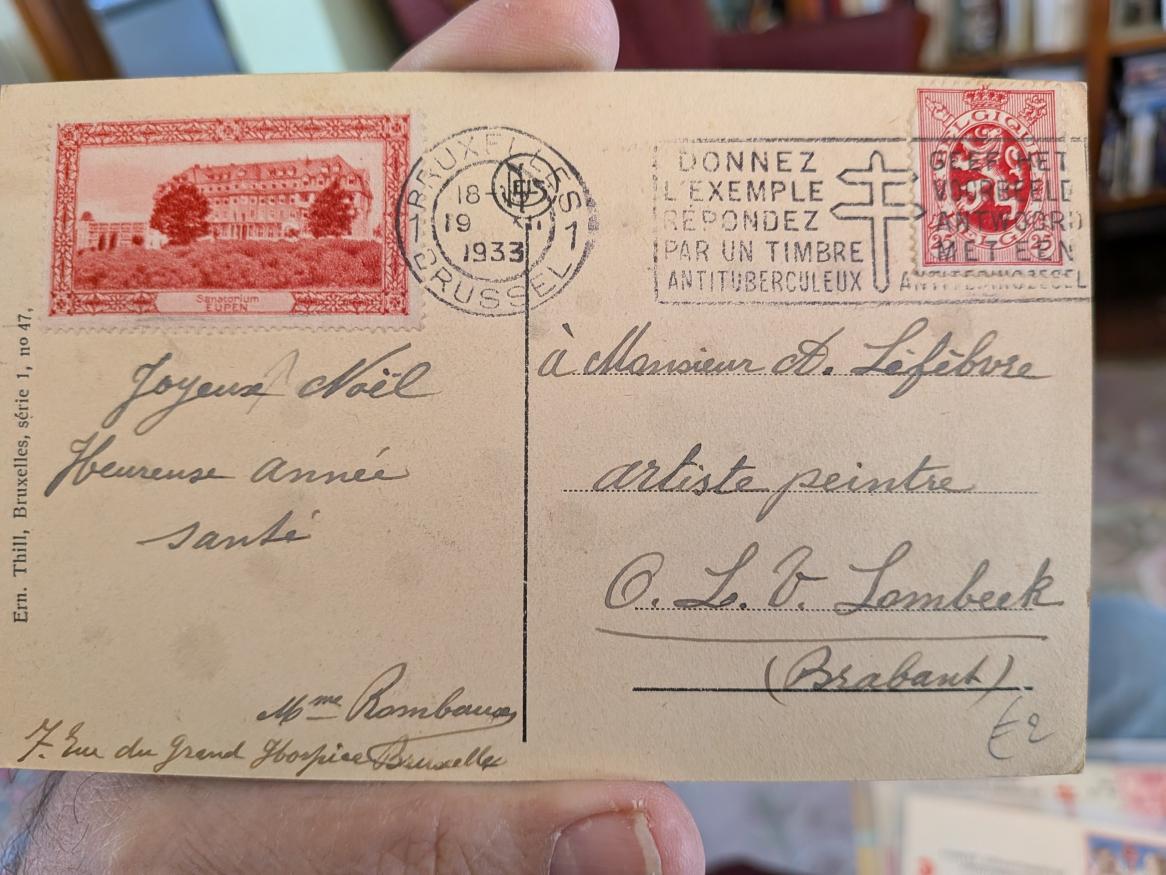 Sanatorium
EUPEN
BRUXELLES 1
18-
19
1933
BRUSSEL
DONNEZ
L'EXEMPLE
RÉPONDEZ
PAR UN TIMBRE
ANTITUBERCULEUX
GEEF HET
VOORBEELD
ANTWOORD
MET EEN
BELGIQUE
BELGIË
Joyeux Noël
Heureuse année
santé
Mme Rombaux
7. Rue du Grand Hospice Bruxelles
à Monsieur A. Lefèbvre
artiste peintre
O. L. V. Lombeek
(Brabant)
£2
Ern. Thill, Bruxelles, série 1, no 47,